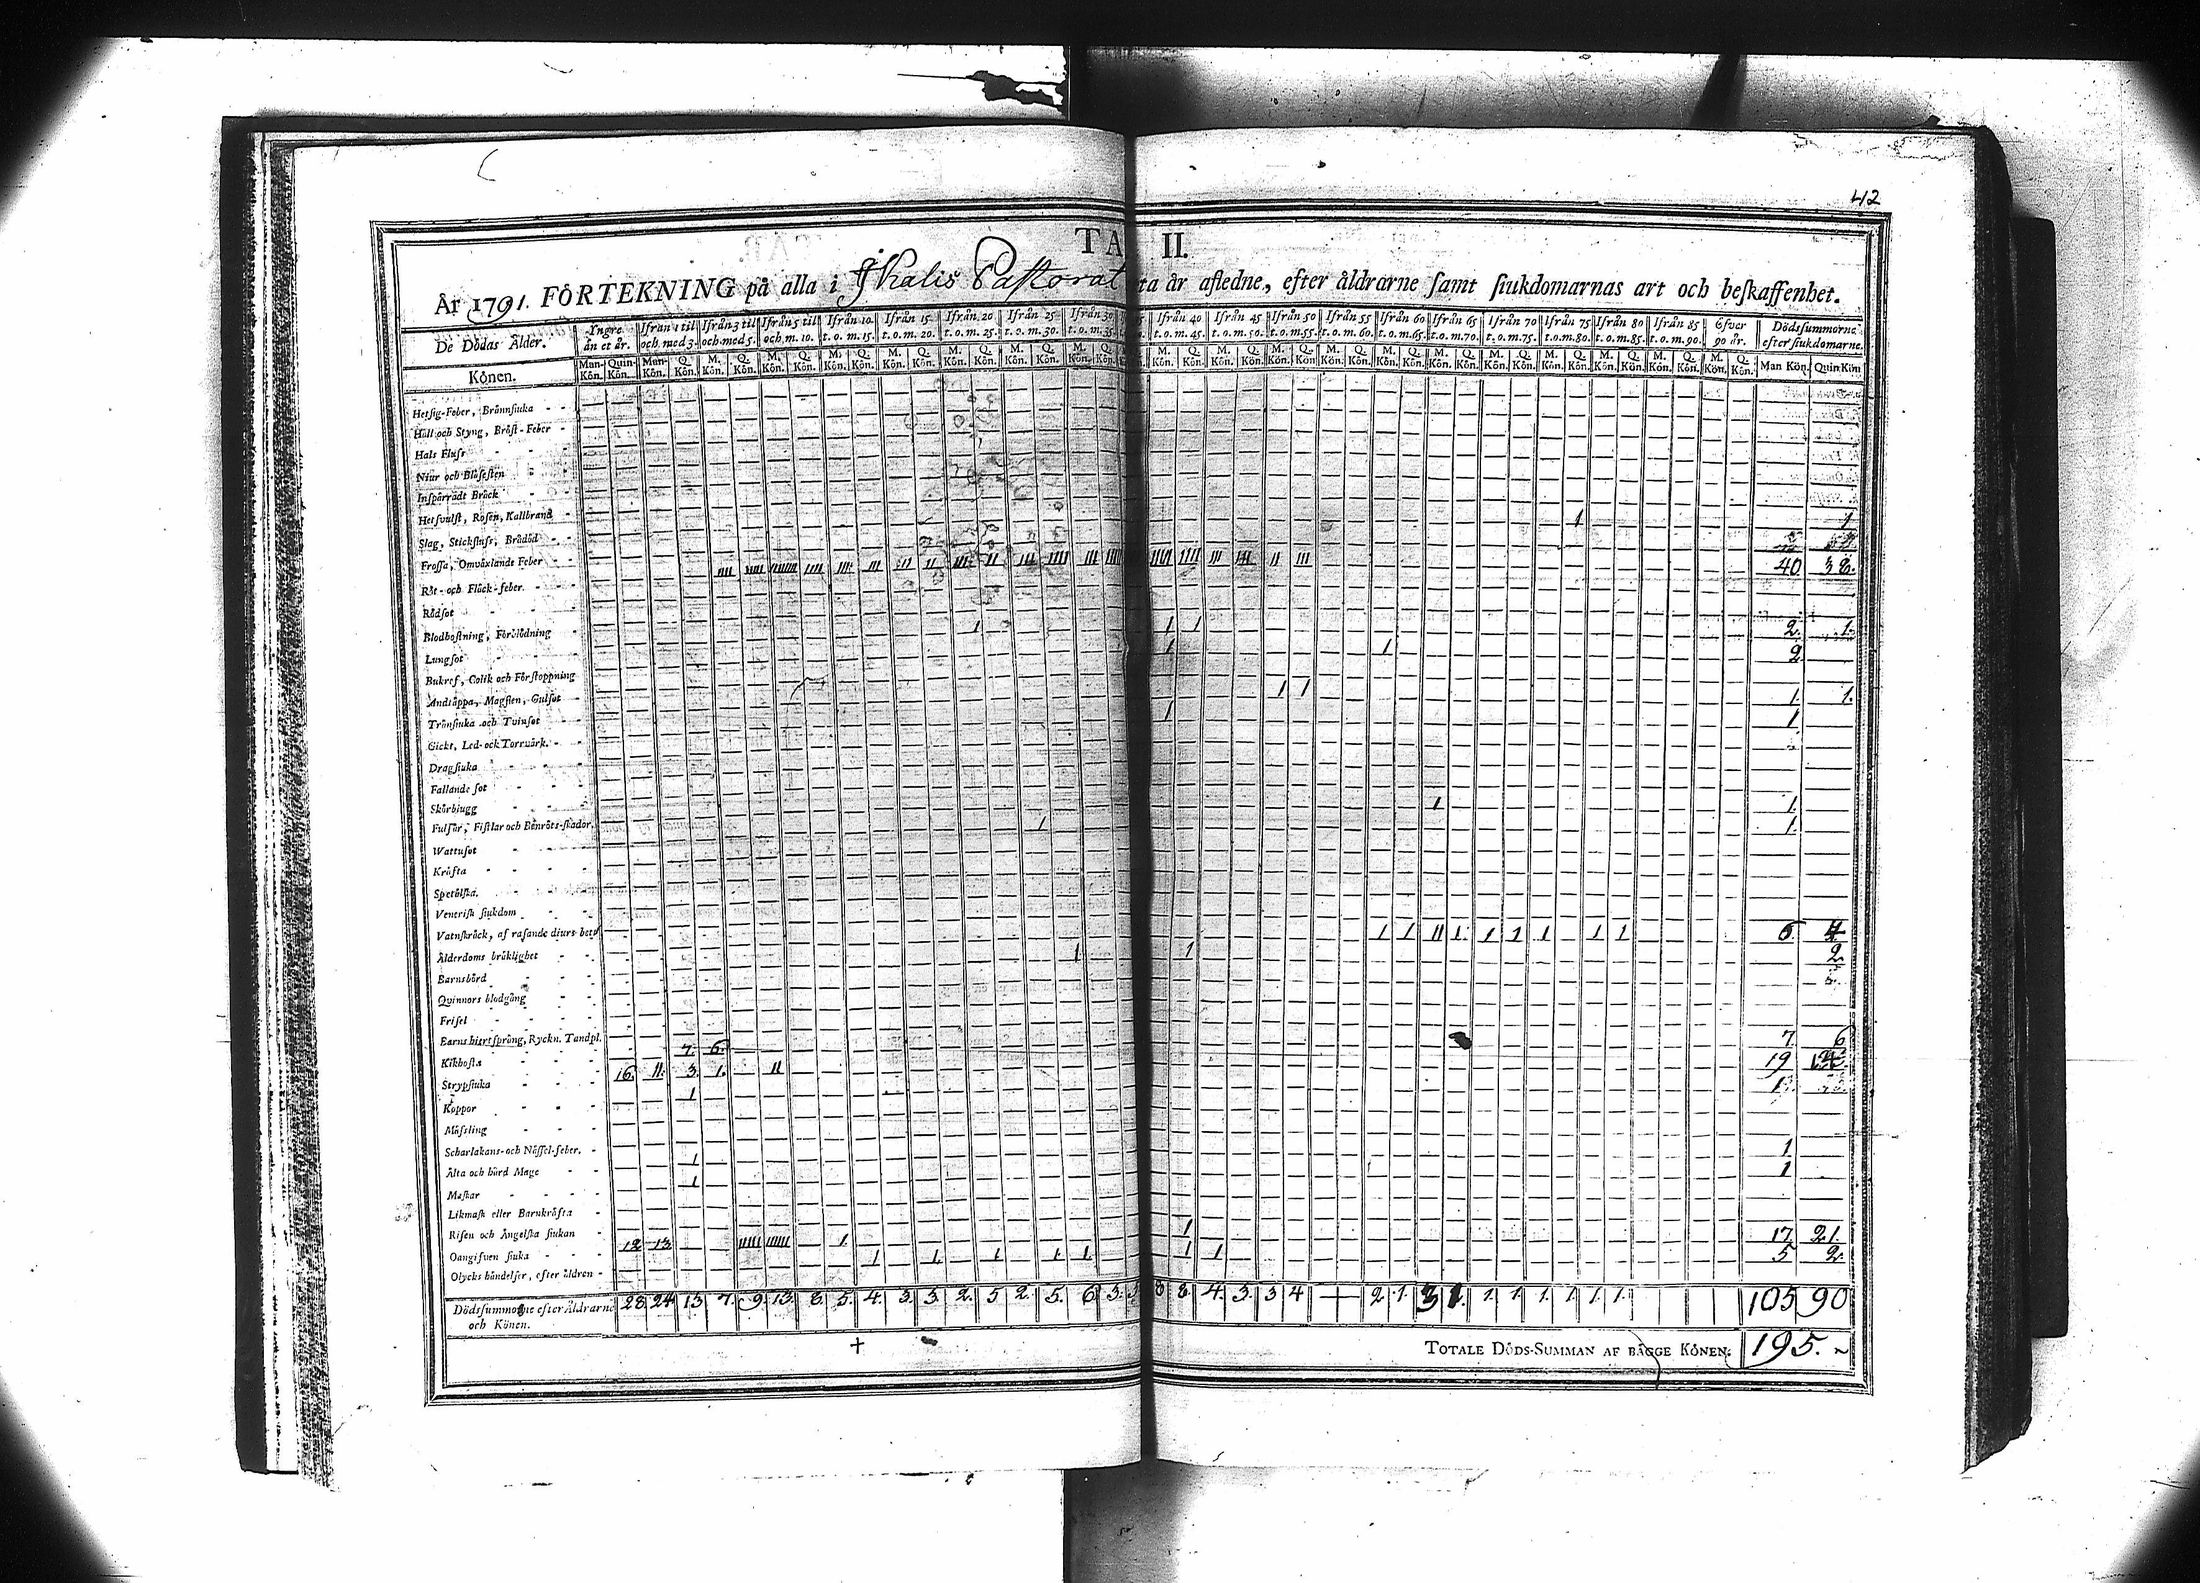 42
TA II.
År 1791. FÖRTEKNING på alla i Ikalis Pastorat ta år afledne, efter åldrarne samt siukdomarnas art och beskaffenhet.
De Dödas Ålder. Yngre än et år. Ifrån 1 til och med 3. Ifrån 3 til och med 5. Ifrån 5 til och m. 10. Ifrån 10 t. o. m. 15. Ifrån 15 t. o. m. 20. Ifrån 20 t. o. m. 25. Ifrån 25 t. o. m. 30. Ifrån 30 t. o. m. 35. Ifrån 40 t. o. m. 45. Ifrån 45 t. o. m. 50. Ifrån 50 t. o. m. 55. Ifrån 55 t. o. m. 60. Ifrån 60 t. o. m. 65. Ifrån 65 t. o. m. 70. Ifrån 70 t. o. m. 75. Ifrån 75 t. o. m. 80. Ifrån 80 t. o. m. 85. Ifrån 85 t. o. m. 90. Öfver 90 år. Dödssummorne efter siukdomarne.
Könen. Man-Kön. Quin-Kön. Man-Kön. Q. Kön. M. Kön. Q. Kön. M. Kön. Q. Kön. Man Kön. Quin Kön
Hetsig-Feber, Brännsiuka
Håll och Styng, Bröst-Feber
Hals Fluss
Niur och Blåsesten
Inspärrádt Bråck
Hetsvulst, Rosen, Kallbrand
Slag, Stickfluss, Brådöd 1 1
Frossa, Omväxlande Feber 40 38.
Röt- och Fläck-feber.
Rödsot
Blodhostning, Förblödning 1 1 1 2. 1.
Lungsot 1 1 2
Bukref, Colik och Förstoppning
Andtäppa, Magsten, Gulsot 1 1 1. 1.
Trånsiuka och Tvinsot 1 1
Gickt, Led- och Torrvärk.
Dragsiuka
Fallande sot
Skörbiugg 1 1.
Fulsår, Fistlar och Benröts-skador. 1 1.
Wattusot
Kräfta
Spetälska.
Venerisk siukdom
Vatnskräck, af rasande diurs bett
Ålderdoms bräklighet 1 1 11 1. 1 1 1 1 1 6 4
Barnsbörd 1 1 2
Qvinnors blodgång
Frisel
Barns hiertsprång, Ryckn. Tandpl.
Kikhosta 7. 6. 7 6
Strypsiuka
Koppor 16. 11. 3. 1. 11 19
Mässling 1
Scharlakans- och Nässel-feber.
Älta och hård Mage 1 1.
Maskar 1 1
Likmask eller Barnkräfta
Risen och Ängelska siukan
Oangifven siuka 12 13. 1. 1 17 21.
Olycks händelser, efter åldren 1 1. 1 1 1 1 1 5 2.
Dödssummorne efter Åldrarne och Könen. 28 24 13 7. 9. 13. 8. 5. 4. 3. 3. 2. 5 2. 5. 6 3. 8 8. 4. 3. 3 4 — 2 1. 3 1. 1. 1. 1. 1 1. 1. 105 90
TOTALE DÖDS-SUMMAN AF BÄGGE KÖNEN. 195.